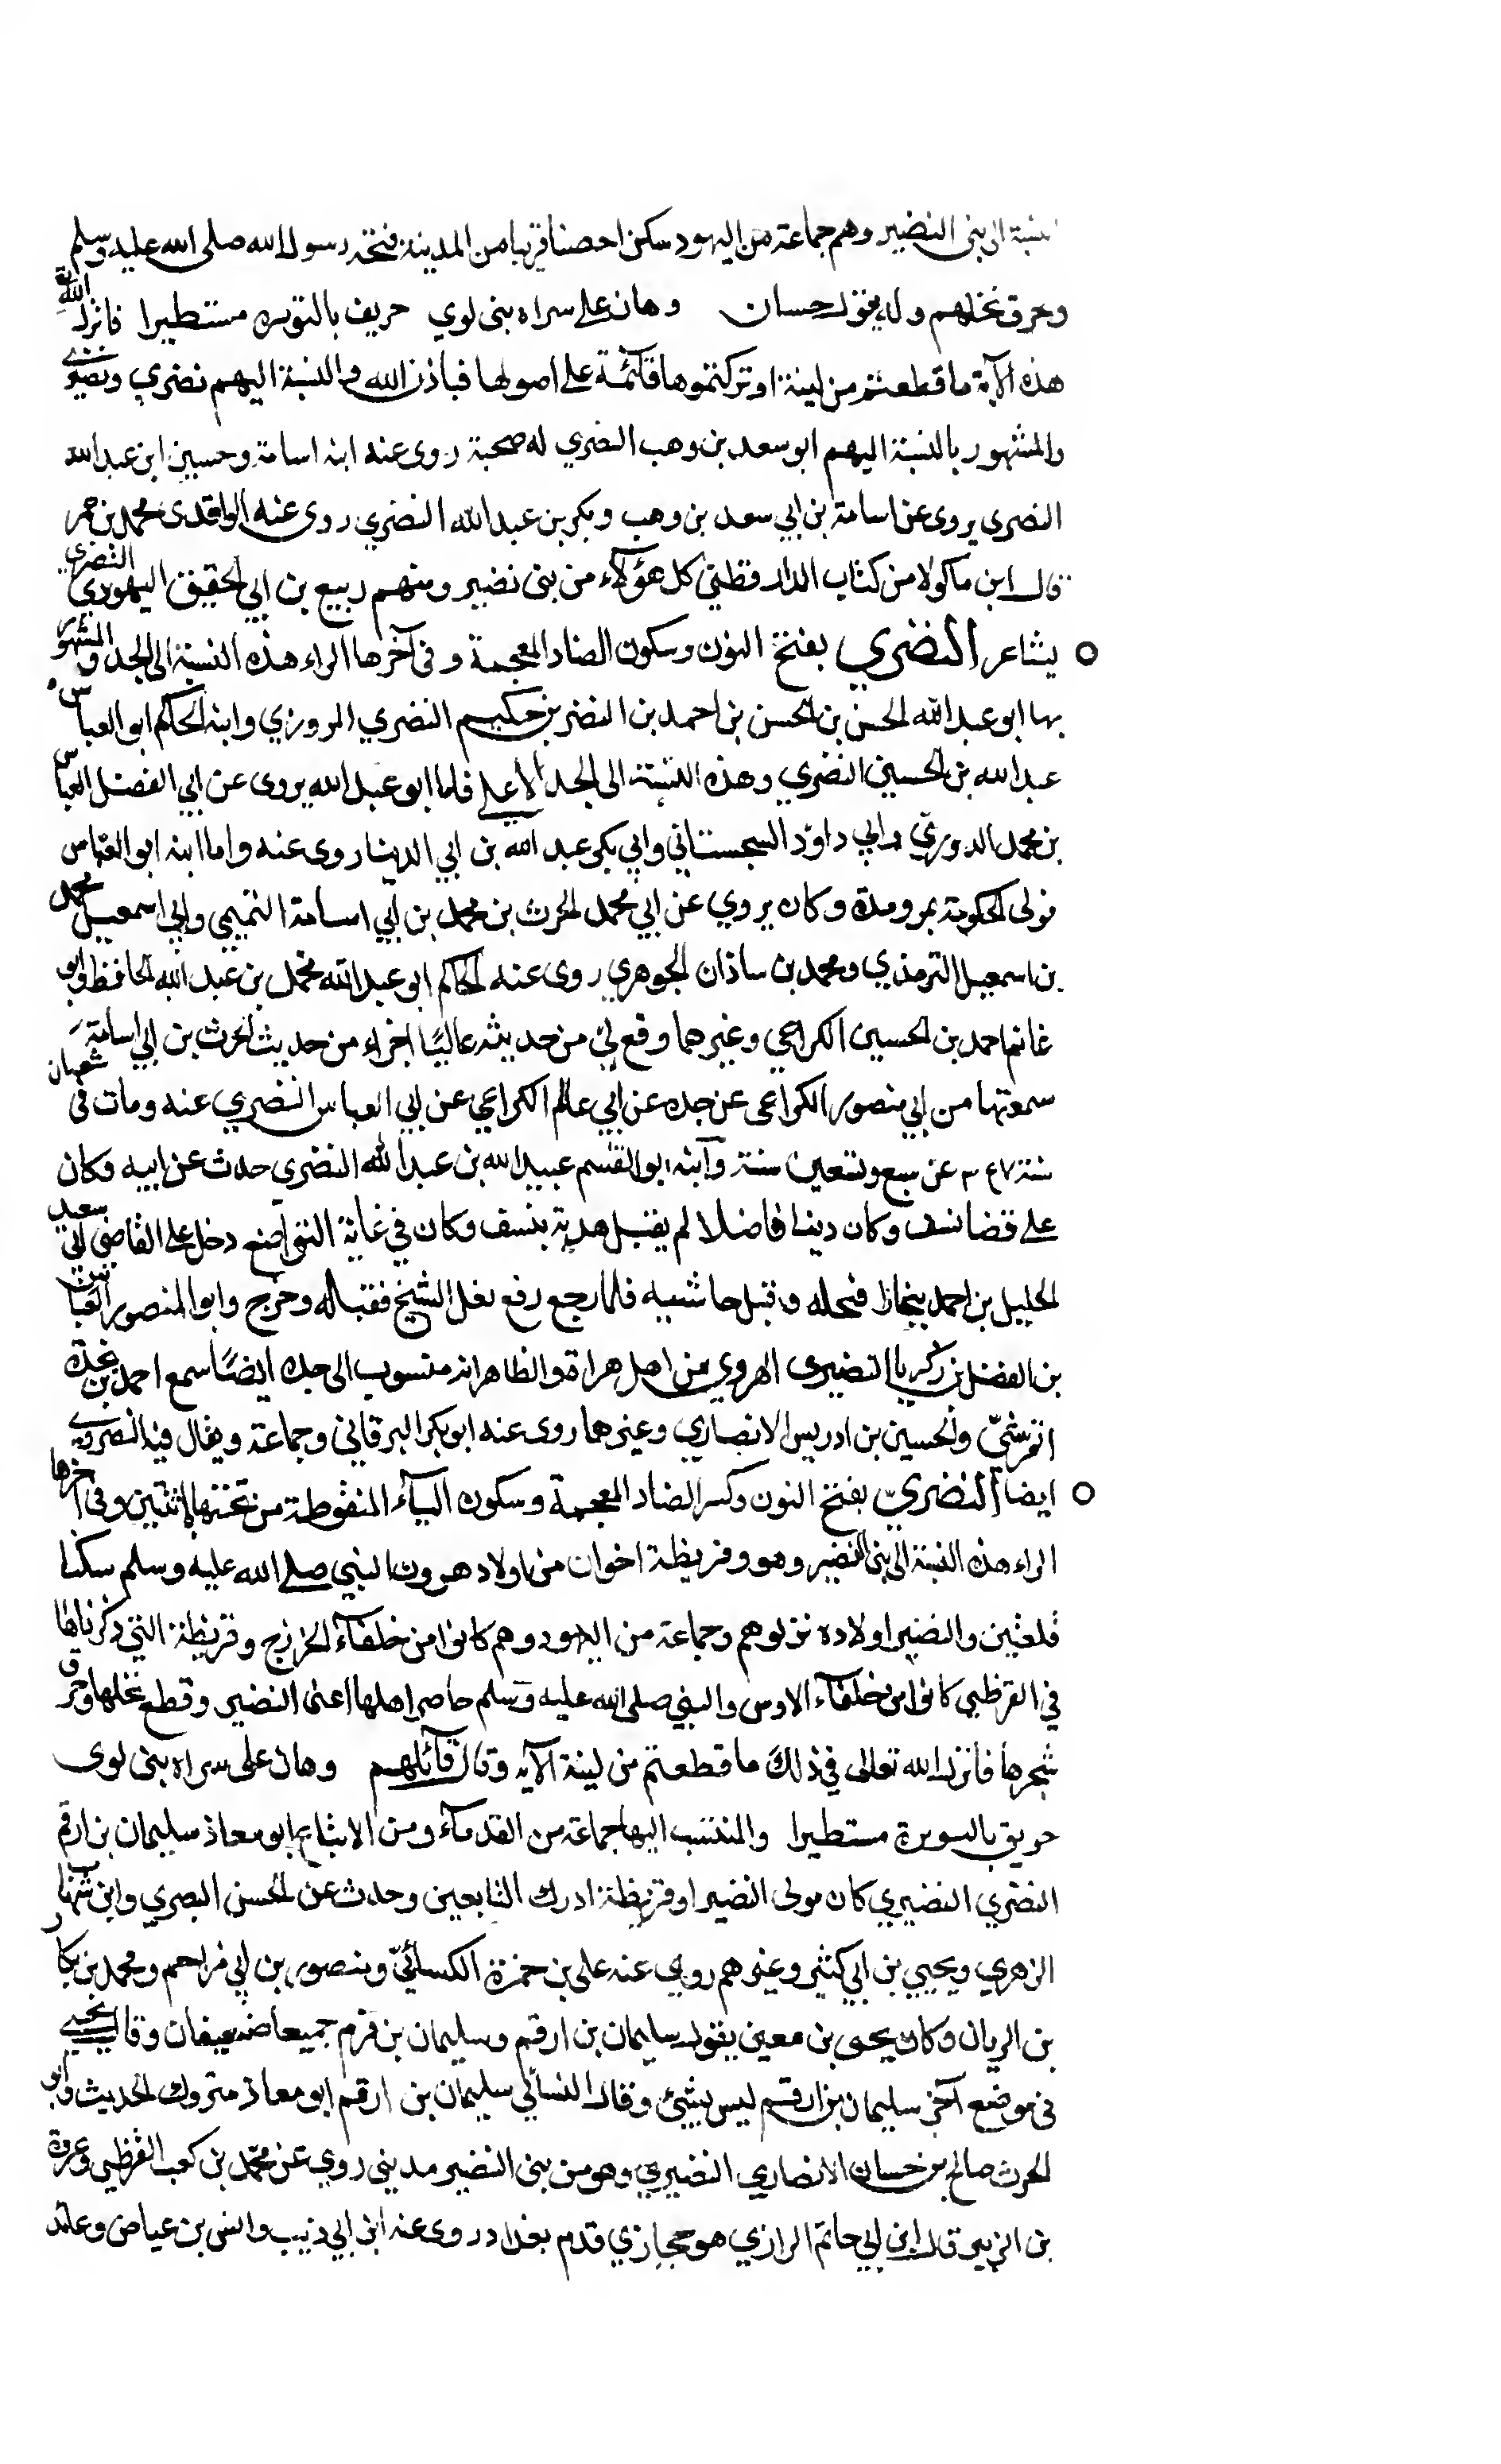 النسبة الى بنى النضير وهم جماعة من اليهود سكنوا حصنا قريبا من المدينة فتحه رسول الله صلى الله عليه وسلم
وحرق نخلهم وله يقول حسان وهان على سراه بنى لوي حريق بالبويره مستطيرا فانزل الله
هذه الآية ما قطعتم من لينة او تركتموها قآئمة على اصولها فباذن الله والنسبة اليهم نضري ونضيري
والمشهور بالنسبة اليهم ابو سعد بن وهب النضري له صحبة روى عنه ابنه اسامة وحسين ابن عبد الله
النضرى يروى عن اسامة بن ابي سعد بن وهب وبكر بن عبد الله النضري روى عنه الواقدى محمد بن عمر
قال ابن ماكولا من كتاب الدارقطني كل هؤلآء من بنى نضير ومنهم ربيع بن ابي الحقيق اليهودى النضري
شاعر النضري بفتح النون وسكون الضاد المعجمة وفى آخرها الراء هذه النسبة الى الجد والمشهور
بها ابو عبد الله الحسن بن الحسن بن احمد بن النضر بن حكيم النضري المروزي وابنه الحاكم ابو العباس
عبد الله بن الحسين النضري وهذه النسبة الى الجد الاعلى فاما ابو عبد الله يروى عن ابي الفضل العباس
بن محمد الدوريّ وابي داوٗد السجستاني وابي بكر عبد الله بن ابي الدنيا روى عنه واما ابنه ابو العبّاس
تولى الحكومة بمرو مدة وكان يروي عن ابي محمد الحرث بن محمد بن ابي اسامة التميمي وابي اسمعيل محمد
بن اسمعيل الترمذي ومحمد بن ساذان الجوهري روى عنه الحاكم ابو عبد الله محمد بن عبد الله الحافظ وابو
غانم احمد بن الحسين الكراعي وغيرهما وقع لي من حديثه عاليًا اجزاء من حديث الحرث بن ابي اسامة
سمعتها من ابي منصور الكراعى عن جده عن ابي غانم الكراعي عن ابي العباس النضري عنه ومات فى شعبان
سنة ٣٤٧ عن سبع وتسعين سنة وآبنه ابو القسم عبيد الله بن عبد الله النضري حدث عن ابيه وكان
على قضا نسف وكان دينا فاضلا لم يقبل هدية بنسف وكان في غاية التواضع دخل على القاضى ابي سعيد
الخليل بن احمد ببخارا فبجله وقبل حاشيه فلما رجع رفع نعل الشيخ فقباله وخرج وابو المنصور العباس
بن الفضل بن زكريا النضيرى الهروي من اهل هراة والظاهر انه منسوب الى جده ايضًا سمع احمد بن نجدة
القرشيّ والحسين بن ادريس الانصاري وغيرهما روى عنه ابو بكر البرقاني وجماعة ويقال فيه النضرويه
ايضا النضريّ بفتح النون وكسر الضاد المعجمة وسكون اليآء المنقوطة من تحتها باثنتين وفى آخرها
الراء هذه النسبة الى بنى النضير وهو وقريظة اخوان من اولاد هرون النبي صلى الله عليه وسلم سكنا
قلعتين والنضير اولاده نزلوهم وجماعة من اليهود وهم كانوا من خلفآء الخزرج وقريظة التي ذكرناها
في القرظي كانوا من خلفآء الاوس والنبي صلى الله عليه وسلم حاصر اهلها اعنى النضير وقطع نخلها وحرق
شجرها فانزل الله تعالى في ذلك ما قطعتم من لينة الآيه وقال قآئلهم وهان على سراه بنى لوى
حريق بالبويرة مستطيرا والمنتسب اليها جماعة من القدمآء ومن الاتباع ابو معاذ سليمان بن ارقم
النضري النضيري كان مولى النضير او قريظة ادرك التابعين وحدث عن الحسن البصري وابن شهاب
الزهري ويحيي بن ابي كثير وغيرهم روى عنه على بن حمزة الكسآئيّ ومنصور بن ابي مزاحم ومحمد بن بكار
بن الريان وكان يحيى بن معين يقول سليمان بن ارقم وسليمان بن قرم جميعا ضعيفان وقال يحيى
فى موضع آخر سليمان بن ارقم ليس بشيئ وقال النسائي سليمان بن ارقم ابو معاذ متروك الحديث وابو
الحرث صالح بن حسان الانصاري النضيري وهو من بنى النضير مديني روي عن محمّد بن كعب القرظي وعروة
بن الزبير قال ابن ابي حاتم الرازي هو حجازي قدم بغداد روى عنه ابن ابي ذئب وانس بن عياض وعائذ